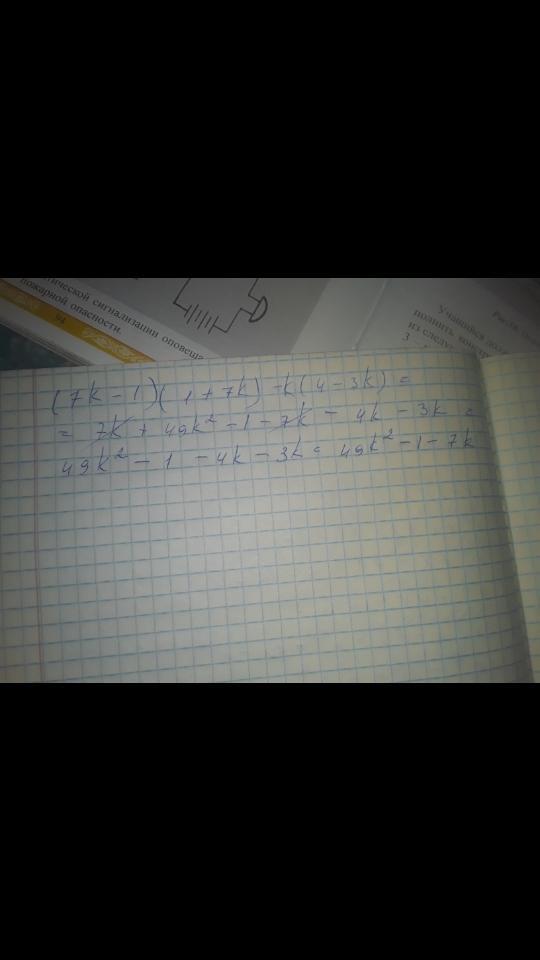 тической сигнализации оповеща
пожарной опасности.
94
Учащийся дол
полнить конст
из следу
(7k - 1)(1 + 7k) - k(4 - 3k) =
= 7k + 49k² - 1 - 7k - 4k - 3k =
49k² - 1 - 4k - 3k = 49k² - 1 - 7k